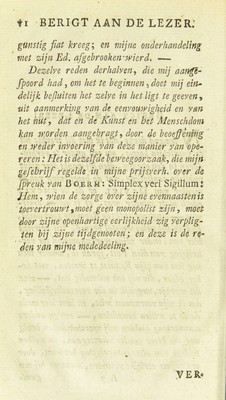 †1 BERIGT AAN DE LEZER.
gunstig fiat kreeg; en mijne onderhandeling
met zijn Ed. afgebrooken wierd. —
Dezelve reden derhalven, die mij aange-
spoord had, om het te beginnen, doet mij ein-
delijk besluiten het zelve in het ligt te geeven,
uit aanmerking van de eenvouwigheid en van
het nut, dat en de Kunst en het Menschdom
kan worden aangebragt, door de beoeffening
en weder invoering van deze manier van ope-
reren: Het is dezelfde beweegoorzaak, die mijn
geschrijf regelde in mijne prijsverh. over de
spreuk van BOERH: Simplex veri Sigillum:
Hem, wien de zorge over zijne evennaasten is
toevertrouwt, moet geen monopolist zijn, moet
door zijne openhartige eerlijkheid zig verplig-
ten bij zijne tijdgenooten; en deze is de re-
den van mijne mededeeling.
VER-